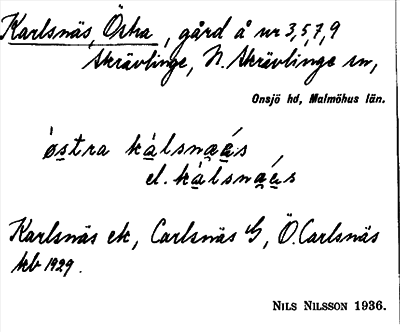 Karlsnäs, Östra, gård å nr 3,5,7,9
Skrävlinge, N. Skrävlinge sn,
Onsjö hd, Malmöhus län.
östra kálsnaás
el. kálsnaás
Karlsnäs ek, Carlsnäs G, Ö. Carlsnäs
kb 1929.
NILS NILSSON 1936.